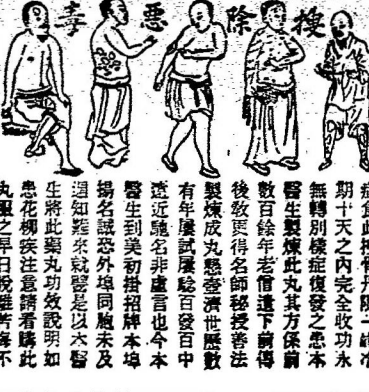 搜除惡毒
症食此搜骨丹限一
期十天之內完全收功永
無轉別樣症復發之患本
醫生製煉此丸其方係前
數百餘年老僧遺下前傳
後教更得名師秘授善法
製煉成丸懸壺濟世歷數
有年屢試屢驗百發百中
遠近馳名非虛言也今本
醫生到美初掛招牌本埠
揚名誠恐外埠同胞未及
週知難來就醫是以本醫
生將此藥丸功效說明如
患花柳疾注意請看購此
丸服之早日脫離苦海不